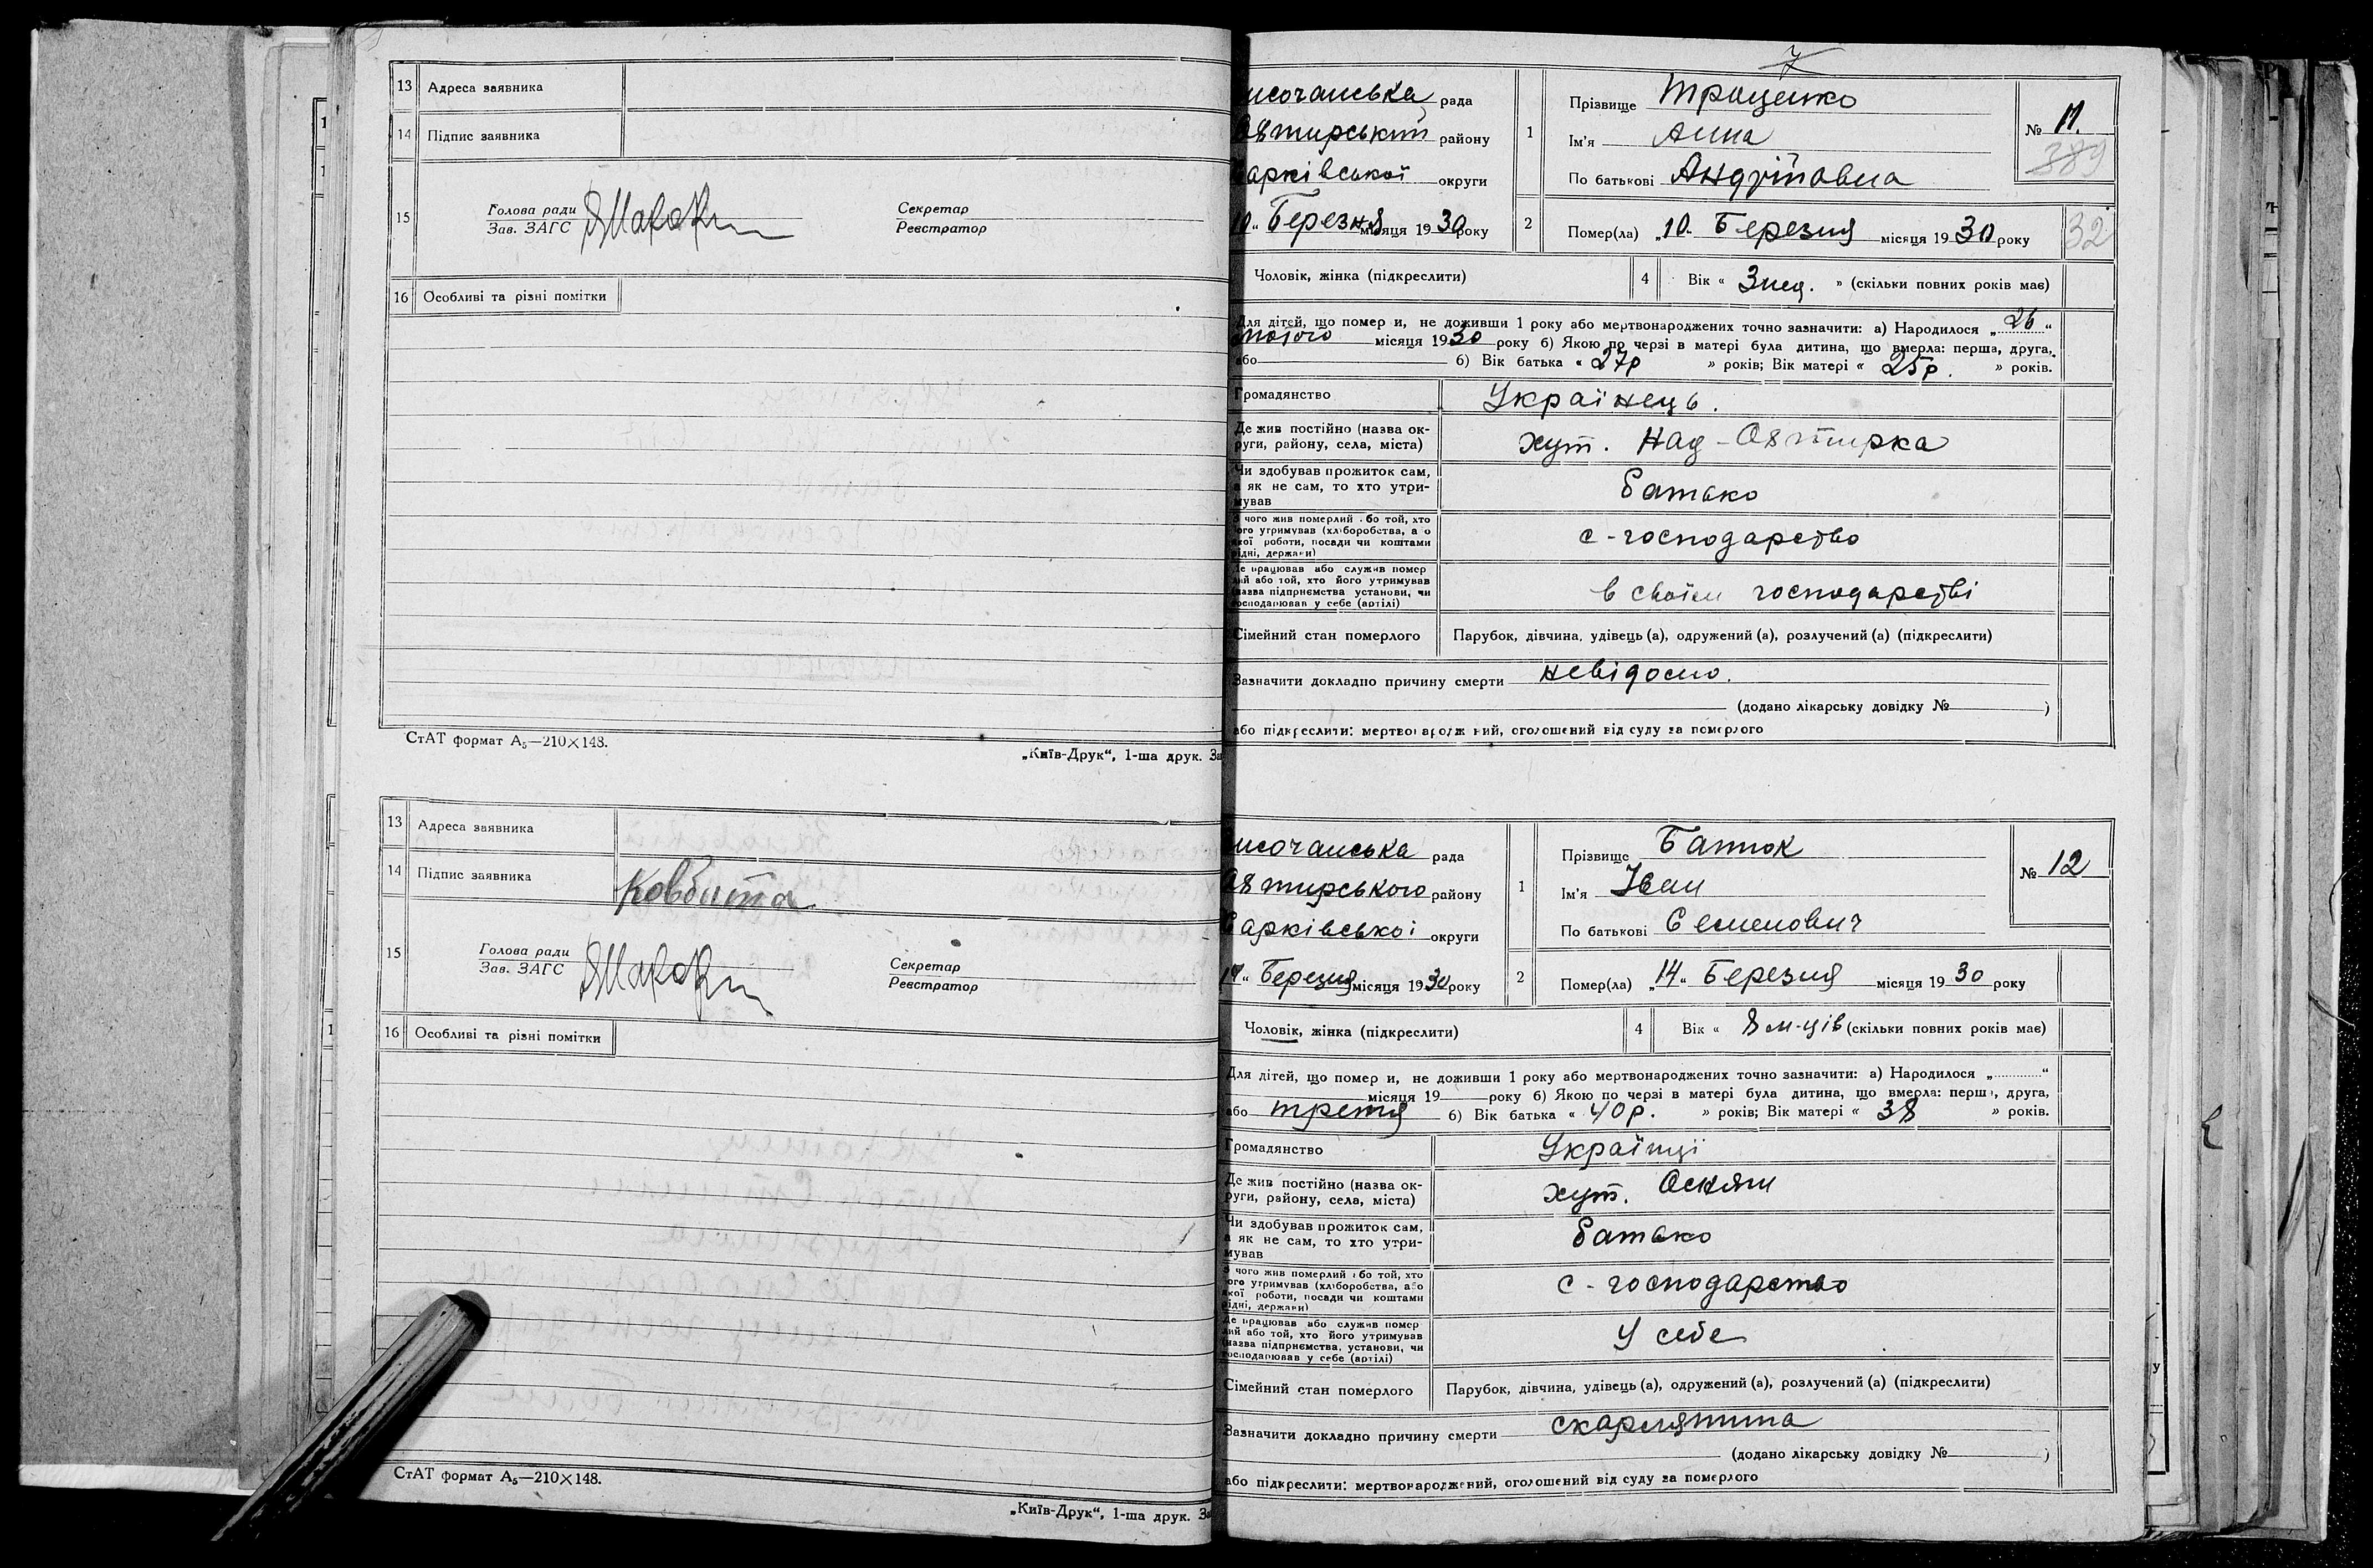 13 Адреса заявника
14 Підпис заявника
15 Голова ради
Зав. ЗАГС
Секретар
Реєстратор
16 Особливі та різні помітки
СтАТ формат А₅—210×148.
„Київ-Друк“, 1-ша друк. За
13 Адреса заявника
14 Підпис заявника Ковбита
15 Голова ради
Зав. ЗАГС
Секретар
Реєстратор
16 Особливі та різні помітки
СтАТ формат А₅—210×148.
„Київ-Друк“, 1-ша друк. За
7
исочанська рада
Охтирський району
Харківської округи
10 „ Березня місяця 1930 року
1 Прізвище Троценко
Ім'я Анна
По батькові Андріївна
№ 11.
389
2 Помер(ла) „10. Березня місяця 1930 року
32
Чоловік, жінка (підкреслити)
4 Вік « 3 нед. » (скільки повних років має)
Для дітей, що помер и, не доживши 1 року або мертвонароджених точно зазначити: а) Народилося „ 26 “
лютого місяця 1930 року б) Якою по черзі в матері була дитина, що вмерла: перша, друга,
або б) Вік батька « 27р » років; Вік матері « 25р. » років.
Громадянство Українець.
Де жив постійно (назва ок-
руги, району, села, міста) хут. Над-Охтирка
Чи здобував прожиток сам,
а як не сам, то хто утри-
мував батько
З чого жив померлий або той, хто
його утримував (хліборобства, або
якої роботи, посади чи коштами
рідні, держави) с-господарство
Де працював або служив помер
лий або той, хто його утримував
(назва підприємства установи, чи
господарював у себе (артілі) в своїм господарстві
Сімейний стан померлого Парубок, дівчина, удівець (а), одружений (а), розлучений (а) (підкреслити)
Зазначити докладно причину смерти невідомо.
(додано лікарську довідку № )
або підкреслити: мертвонароджений, оголошений від суду за померлого
исочанська рада
Охтирського району
Харківської округи
14 “ Березня місяця 1930 року
1 Прізвище Батюк
Ім'я Іван
По батькові Семенович
№ 12
2 Помер(ла) „14“ Березня місяця 1930 року
Чоловік, жінка (підкреслити)
4 Вік « 8 м-ців (скільки повних років має)
Для дітей, що помер и, не доживши 1 року або мертвонароджених точно зазначити: а) Народилося „ “
місяця 19 року б) Якою по черзі в матері була дитина, що вмерла: перша, друга,
або третя б) Вік батька « 40р. » років; Вік матері « 38 » років.
Громадянство Українці
Де жив постійно (назва ок-
руги, району, села, міста) хут. Оскяни
Чи здобував прожиток сам,
а як не сам, то хто утри-
мував батько
З чого жив померлий або той, хто
його утримував (хліборобства, або
якої роботи, посади чи коштами
рідні, держави) с-господарство
Де працював або служив помер
лий або той, хто його утримував
(назва підприємства, установи, чи
господарював у себе (артілі) У себе
Сімейний стан померлого Парубок, дівчина, удівець (а), одружений (а), розлучений (а) (підкреслити)
Зазначити докладно причину смерти скарлятина
(додано лікарську довідку № )
або підкреслити: мертвонароджений, оголошений від суду за померлого